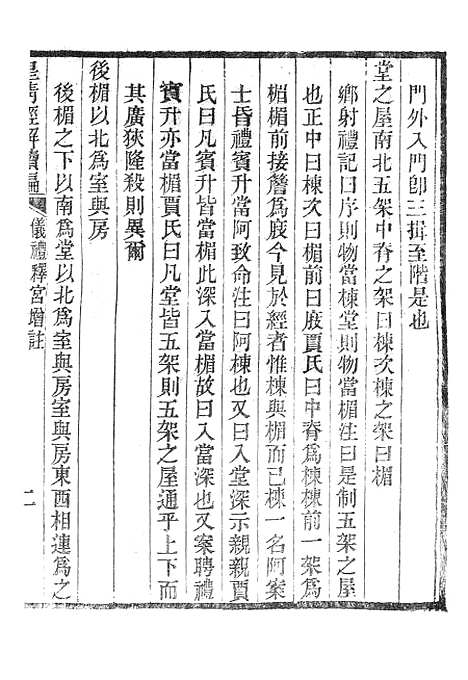 門外入門卽三揖至階是也
堂之屋南北五架中脊之架曰棟次棟之架曰楣
鄉射禮記曰序則物當棟堂則物當楣注曰是制五架之屋
也正中曰棟次曰楣前曰庪賈氏曰中脊爲棟棟前一架爲
楣楣前接簷爲庪今見於經者惟棟與楣而已棟一名阿案
士昏禮賓升當阿致命注曰阿棟也又曰入堂深示親親賈
氏曰凡賓升皆當楣此深入當棟故曰入當深也又案聘禮
賓升亦當楣賈氏曰凡堂皆五架則五架之屋通乎上下而
其廣狹隆殺則異爾
後楣以北爲室與房
後楣之下以南爲堂以北爲室與房室與房東西相連爲之
皇清經解續編 儀禮釋宮增註 二